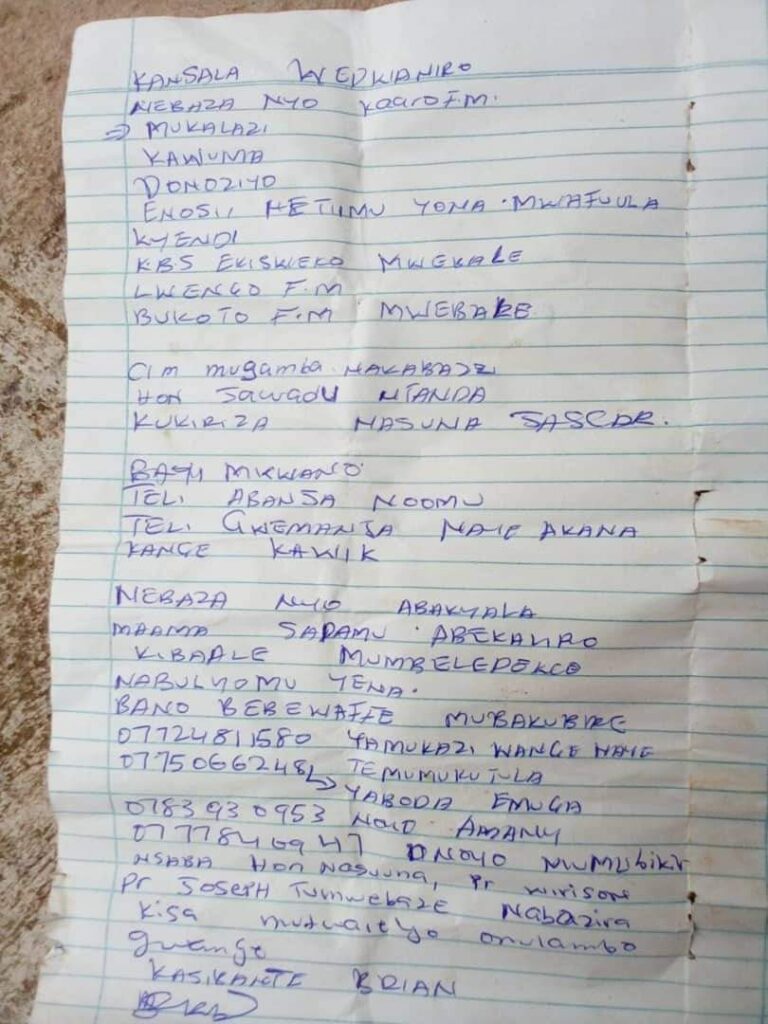 KANSALA WEDKIANIRO
NEBAZA NYO KaaroF.M.
⇒ MUKALAZI
KAWUMA
DONOZIYO
ENOSII NETIIMU YONA. MWAFUULA
KYENDI
KBS EKISWEKO MWEKALE
LWENGO F.M
BUKOTO F.M MWEBALE
CIM mugamba NAKABAJZI
HON Sawadu NTANDA
KUKIRIZA NASUNA
BANI MKWANO
TELI ABANJA NOOMU
TELI GWEMANJA NAYE AKANA
KANGE KAWIK
NEBAZA NYO ABAKYALA
MAAMA SADAMU. ABEKANIRO
KIBAALE MUMBELEDEKCO
NABULYOMU YENA.
BANO BEBEWAFFE MUBAKUBIRE
07724811580 YAMUKAZI WANGE NAYE
0775066248 TEMUMUKUTULA
→ YABODA EMUGA
0783930953 NOYO AMANY
0777846947 ONOYO NWMUbikir
NSABA Hon Nasuuna, Pr wirison
Pr JOSEPH Tumwebaze Nabazira
Kisa mutwaityo omulambo
gwange
KASIKANTE BRIAN